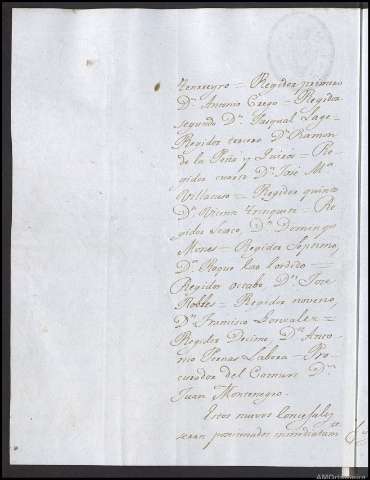 Tenreyro = Regidor primero
Dn. Antonio Crego = Regidor
segundo Dn. Pasqual Lage =
Regidor tercero Dn. Ramon
de la Peña y = Re-
gidor cuarto Dn. Jose Ma.
Villasuso = Regidor quinto
Dn. Vicente = Re-
gidor Sesto, Dn. Domingo
Mones = Regidor Septimo,
Dn. Roque =
Regidor octabo, Dn. Jose
Robles = Regidor noveno,
Dn. Francisco Gonzalez =
Regidor Decimo, Dn. Anto-
nio Pernas Labora = Pro-
curador del Comun Dn.
Juan Montenegro.
Estos nuevos Concejales
seran posesionados inmediatamte.